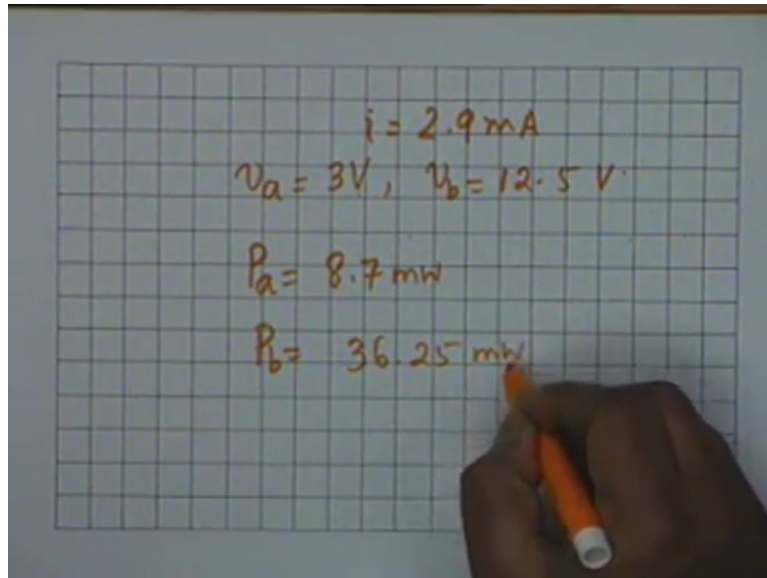 i = 2.9 mA
Va = 3V, Vb = 12.5 V
Pa = 8.7 mw
Pb = 36.25 mw